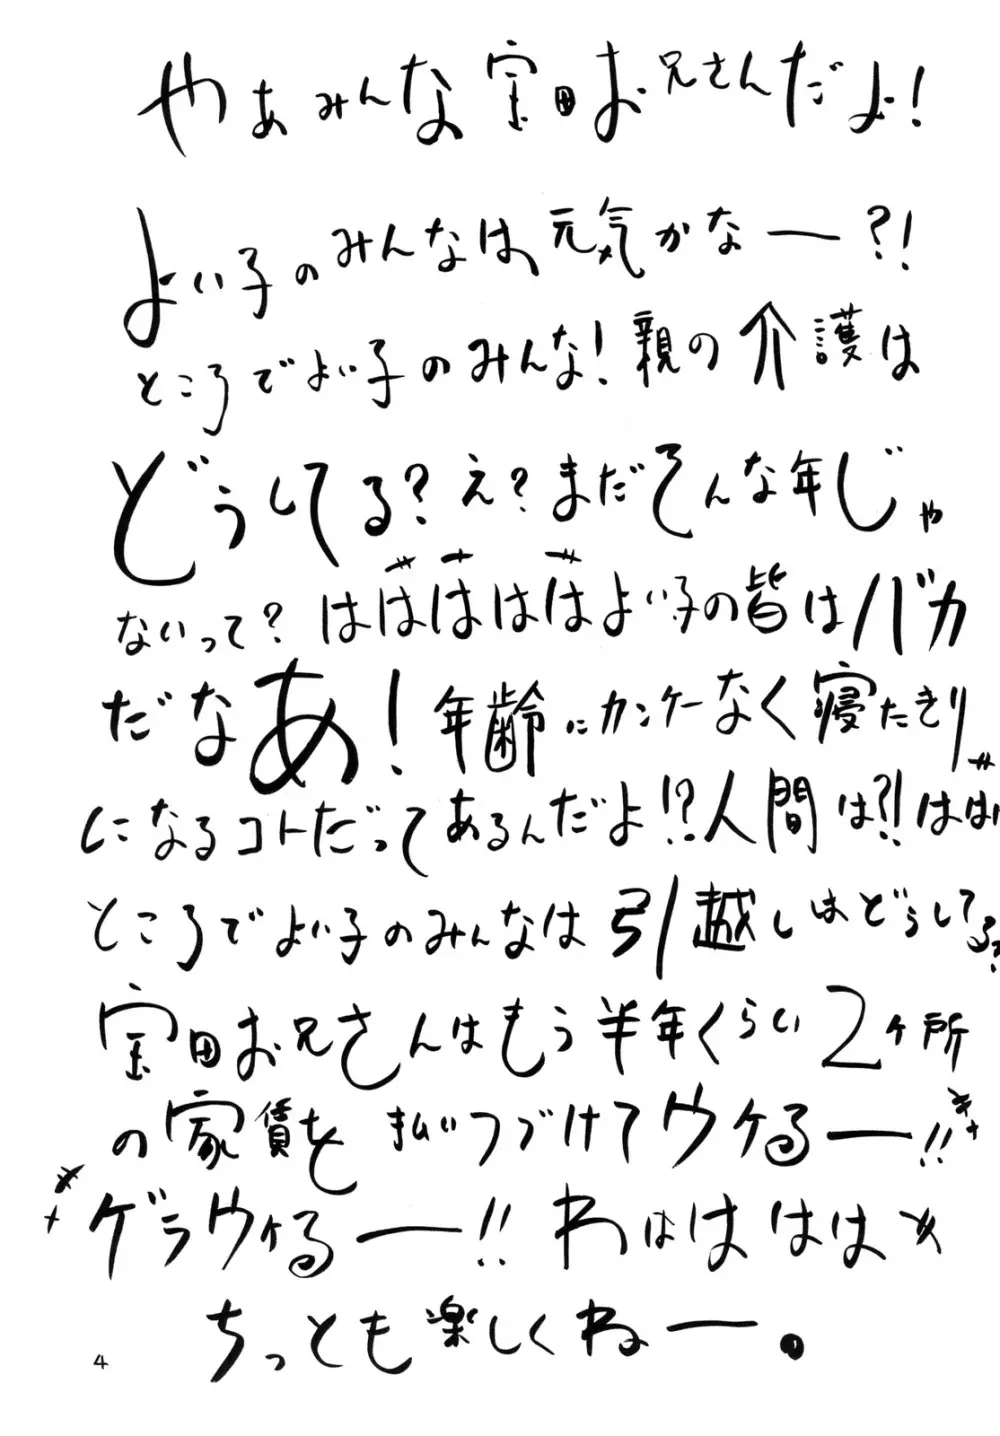 やぁみんな宝田お兄さんだよ!
よい子のみんなは、元気かなー?!
ところでよい子のみんな!親の介護は
どうしてる?え?まだそんな年じゃ
ないって?はははははよい子の皆はバカ
だなあ!年齢にカンケーなく寝たきり
になるコトだってあるんだよ!?人間は?!はは
ところでよい子のみんなは引越しはどうしてる?
宝田お兄さんはもう半年くらい2ケ所
の家賃を払いつづけてウケるー!!
ゲラウケるー!!わはははは
ちっとも楽しくねー。
4